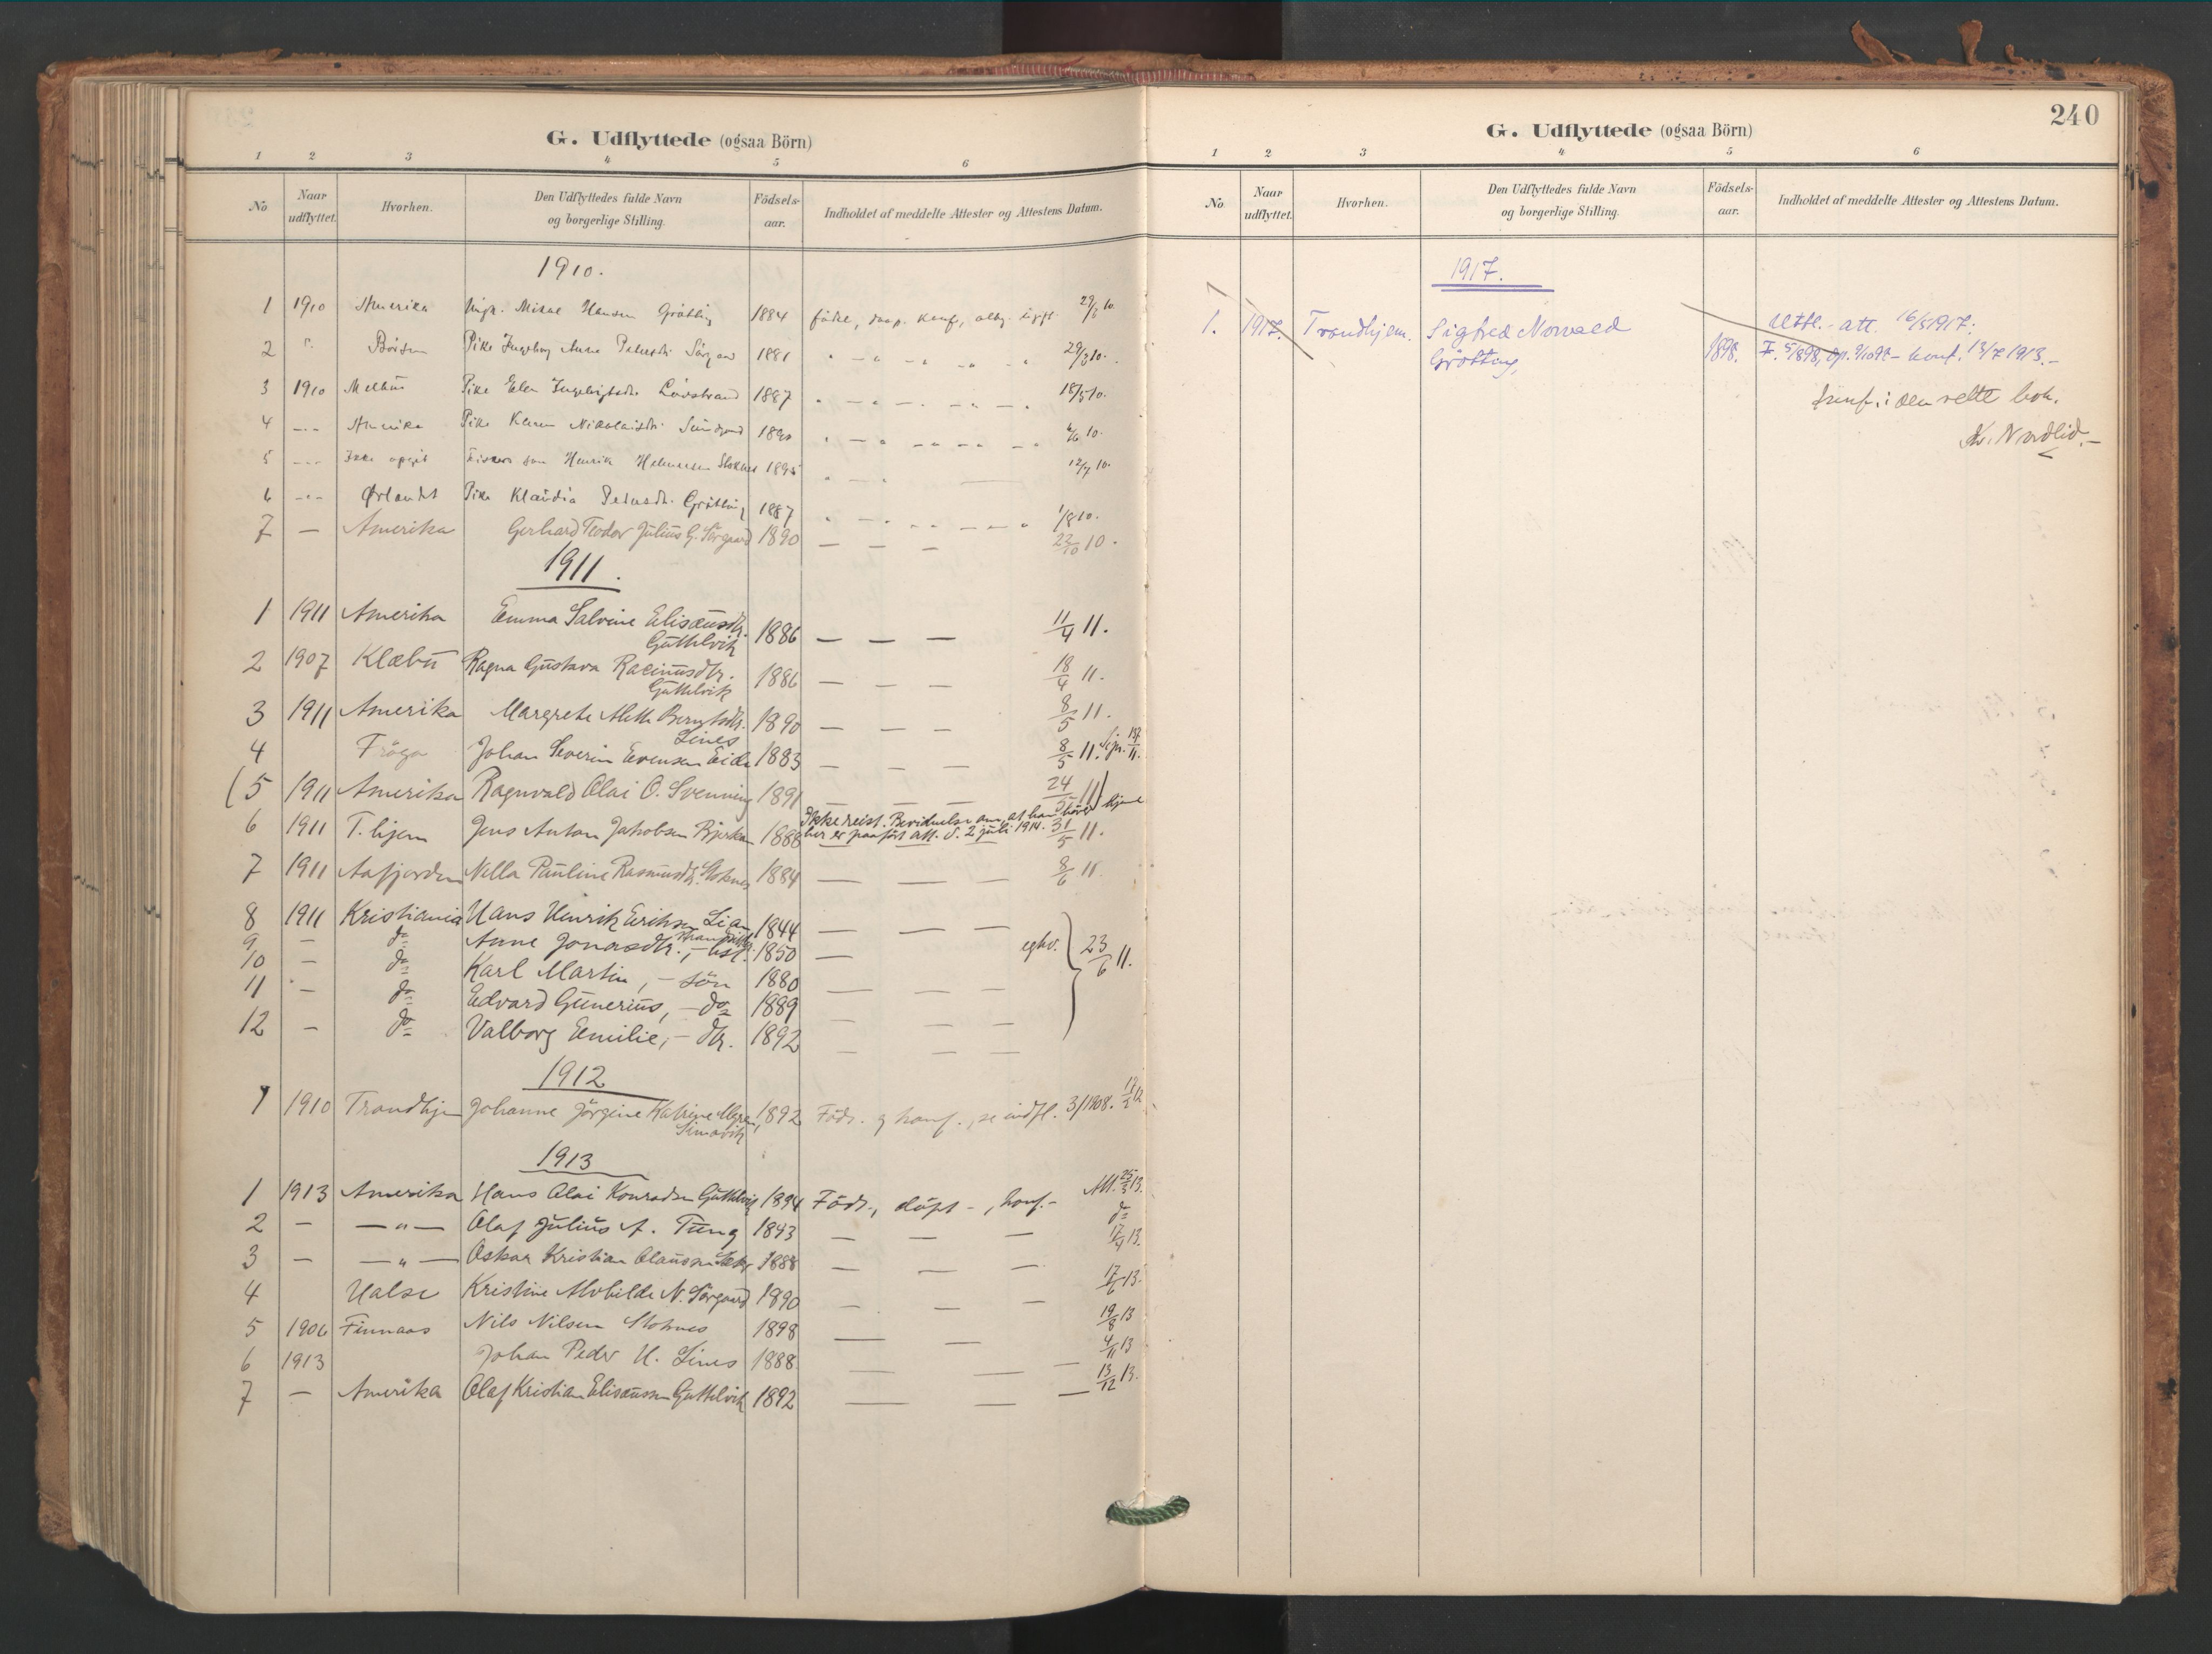 G. Udflyttede (ogsaa Börn)
1 2 3 4 5 6
No Naar udflyttet. Hvorhen. Den Udflyttedes fulde Navn og borgerlige Stilling. Födsels-aar. Indholdet af meddelte Attester og Attestens Datum.
1910.
1 1910 Amerika Mikal Hansen Grötting 1884 födt, döp. konf., 29/3 10.
2 " Börsen Pike Ingeborg Anna Sörgaard 1881 " - " - " 29/3 10.
3 1910 Melhus Pike Elen Lövstrand 1887 " - " - " 18/5 10.
4 - " - Amerika Pike Karen Nikolaisdtr. 1890 " - " - " 6/6 10.
5 - " - Ikke opgit Henrik Stoknes 1895 " - " 12/7 10.
6 - " - Ørlandet Pike Klaudia Pedersdtr. Gröttting 1887 " - " - " 1/8 10.
7 — Amerika Gerhard Teodor Julius G. Sörgaard 1890 — — — 22/10 10.
1911.
1 1911 Amerika Emma Salvine Elisæusdtr. 1886 — — — 11/4 11.
Guttelvik
2 1907 Klæbu Ragna Gustava Racinusdtr. 1886 — — — 18/4 11.
Guttelvik
3 1911 Amerika Margrete Aleth Berntsdtr. 1890 — — — 8/5 11.
Lines
4 Fröya Johan Severin Evensen Eide 1883 — — — 8/5 11.
(5 1911 Amerika Ragnvald Olai O. Svenning 1891 — — — 24/5 11)
Ikke reist. Bevidnelse om, at han hører hjemme
her er paaført att. d. 2 juli 1914.
6 1911 T.hjem Jens Anton Jakobsen Bjerkan 1888 31/5 11.
7 1911 Aafjorden Nella Pauline Rasmusdtr. Stoknes 1884 — — — 8/6 11
8 1911 Kristiania Hans Henrik Eriksen Lian 1844 — — —
9 — do Anne Jonasdtr., — hst. 1850 — egkv. 23/6 11.
10 — do Karl Martin, — sön 1880 — — —
11 — do Edvard Gunerius, — do 1889 — — —
12 — do Valborg Emilie, — dtr. 1892 — — —
1912
1 1910 Trondhjem Johanne Jörgine Katrine 1892 Födt. g konf., se indfl. 3/1908. 12
1913
1 1913 Amerika Hans Olai Konradsen Guttelvik 1894 Födt., döpt -, konf. - Att. 25/3 13.
2 — — " — Olaf Julius A. Tung 1893 — — — do
3 — — " — Oskar Kristian Olaussen 1888 — — — 17/4 13.
4 Halse Kristine Alvhilde N. Sörgaard 1890 — — — 17/6 13.
5 1906 Finnaas Nils Nilsen Stoknes 1898 — — 19/8 13
6 1913 Johan Peder H. Lines 1888 — — — 4/11 13
7 — Amerika Olaf Kristian Elisæussen Guttelvik 1892 — — — 13/12 13.
240
G. Udflyttede (ogsaa Börn)
1 2 3 4 5 6
No. Naar udflyttet. Hvorhen. Den Udflyttedes fulde Navn og borgerlige Stilling. Födsels-aar. Indholdet af meddelte Attester og Attestens Datum.
1917.
1. 1917. Trondhjem. Sigfred Norvald Utfl.- att. 16/5 1917:
Gröttting, 1898. F. 5/8 98, dp. 9/10 98 - konf. 13/7 1913.-
i den rette bok.
Nordlid.-